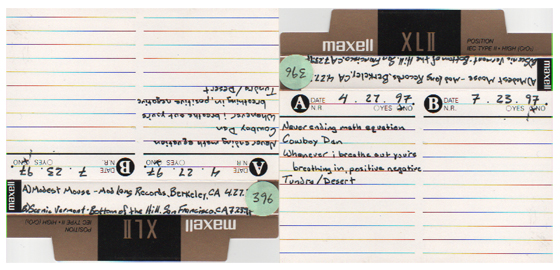 Never ending math equation
Cowboy Dan
Whenever i breathe out you're
breathing in, positive negative
Tundra/Desert
A DATE 4. 27. 97
N.R. YES NO
B DATE 7. 23. 97
N.R. YES NO
maxell
A) Modest Mouse - Mod Lang Records, Berkeley, CA 4.27.
B) Scenic Vermont - Bottom of the Hill, San Francisco, CA 7.23.97
396
maxell XLII
POSITION
IEC TYPE II • HIGH (CrO₂)
maxell XLII
POSITION
IEC TYPE II • HIGH (CrO₂)
maxell
A) Modest Mouse - Mod Lang Records, Berkeley, CA 4.27.
B) Scenic Vermont - Bottom of the Hill, San Francisco, CA 7.23.97
396
A DATE 4. 27. 97.
N.R. YES NO
B DATE 7. 23. 97.
N.R. YES NO
Never ending math equation
Cowboy Dan
Whenever i breathe out you're
breathing in, positive negative
Tundra/Desert